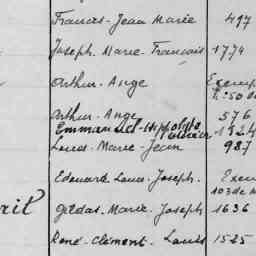 Francis-Jean Marie 497
Joseph-Marie-Francois 1774
Arthur-Ange Exemp
Arthur-Ange 576
Emmanuel-Hippolyte 1524
Louis-Marie-Jean 987
Edouard Louis-Joseph. Exem
103 de
rit Gildas-Marie-Joseph 1636
René-Clément-Louis 1525